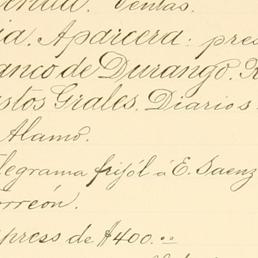 Ventas.
ia. Aparcera: pres
anco de Durango. R
stos Grales. Diarios
Alamo.
legrama frijól á E. Saenz
orreón.
press de $400.00